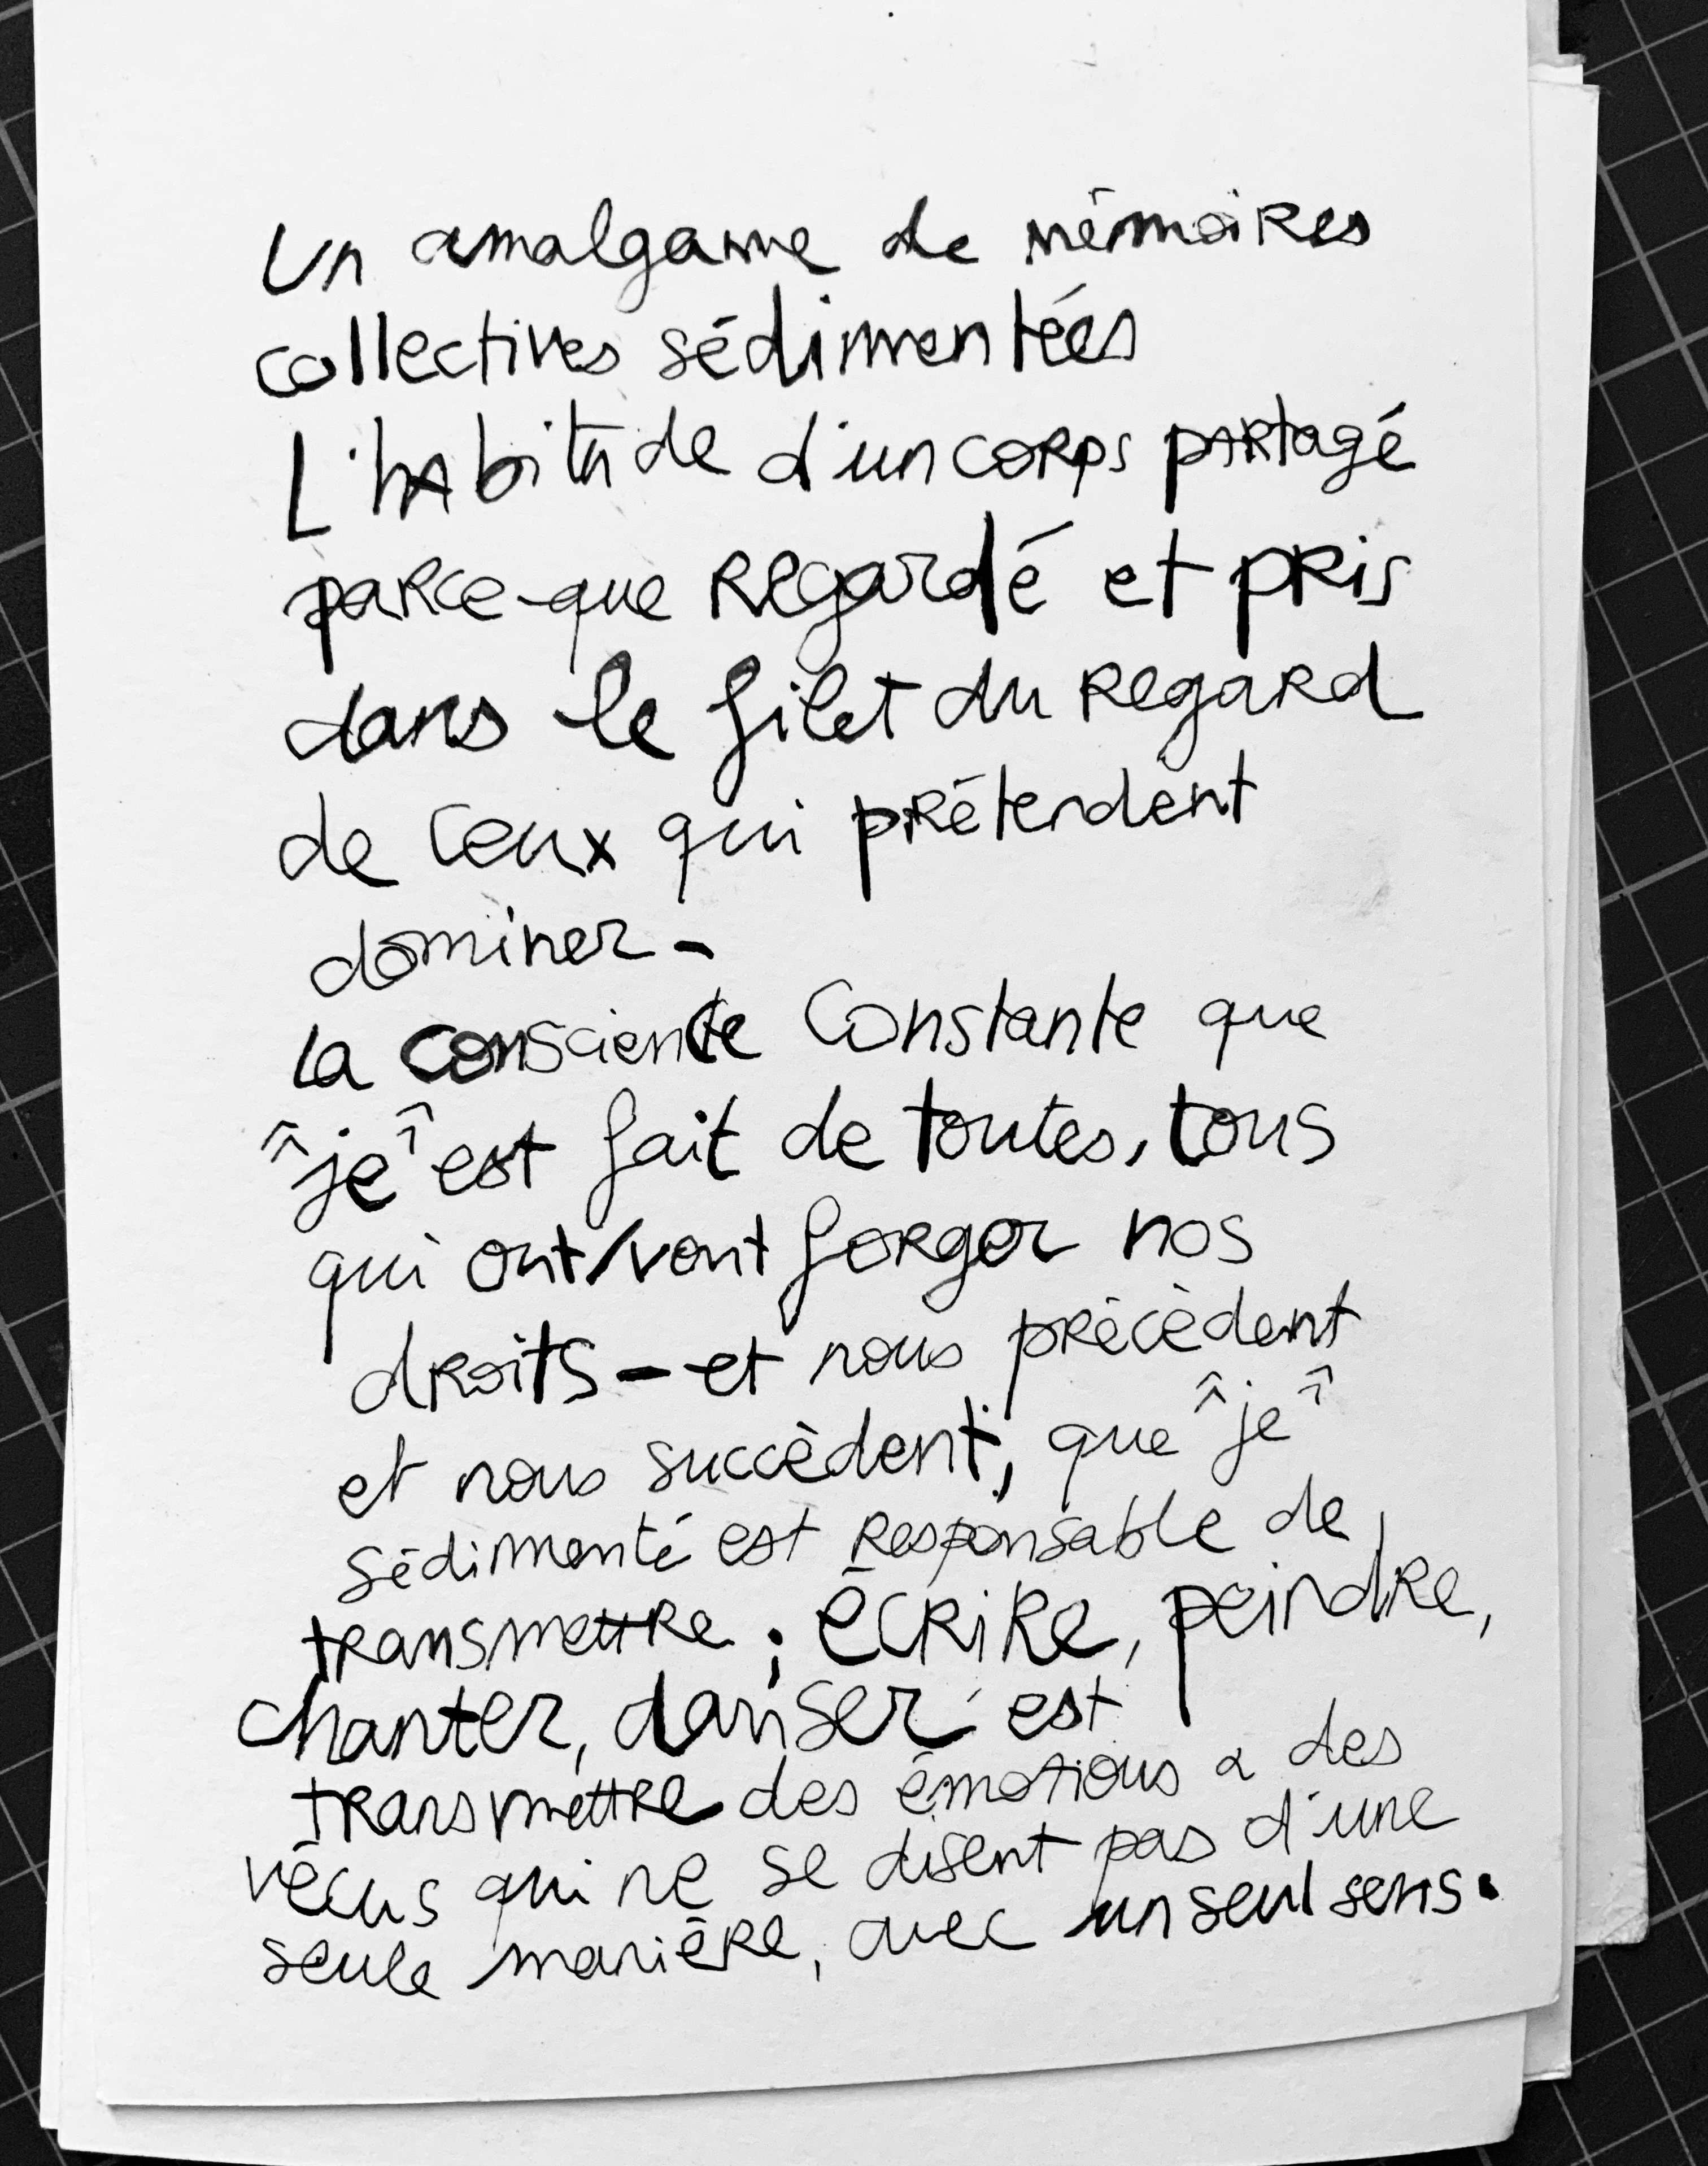 Un amalgame de mémoires
collectives sédimentées
L'habitude d'un corps partagé
parce-que regardé et pris
dans le filet du regard
de ceux qui prétendent
dominer -
La conscience constante que
"je" est fait de toutes, tous
qui ont/vont forger nos
droits - et nous précèdent
et nous succèdent, que "je"
sédimenté est responsable de
transmettre ; écrire, peindre,
chanter, danser est
transmettre des émotions & des
vécus qui ne se disent pas d'une
seule manière, avec un seul sens.